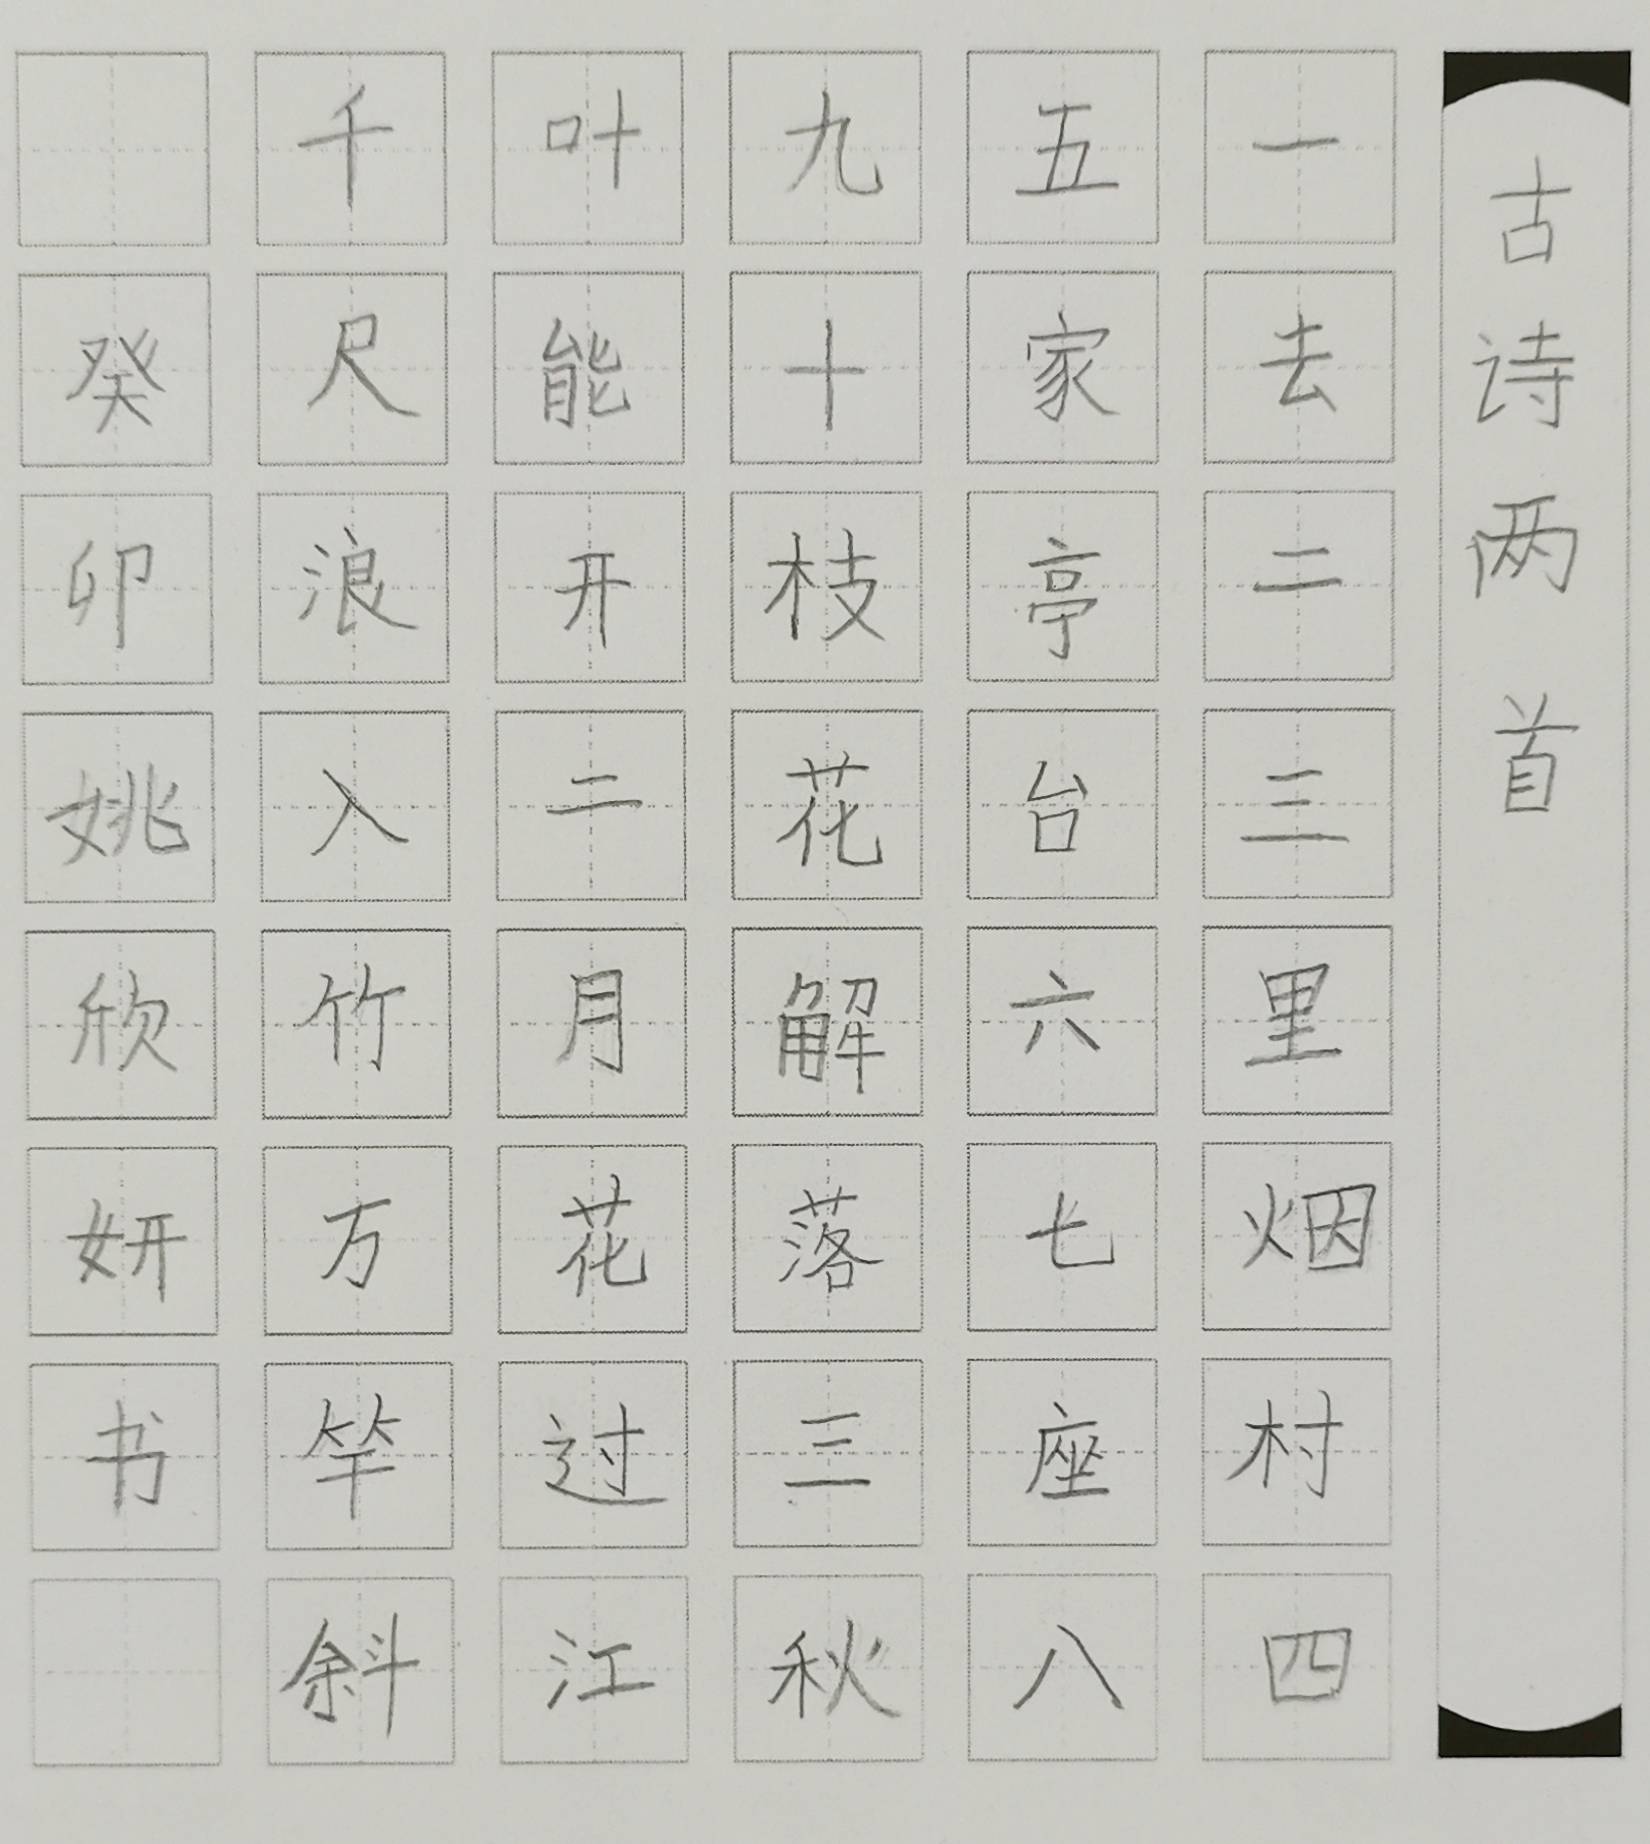 古诗两首
一去二三里烟村四
五家亭台六七座八
九十枝花解落三秋
叶能开二月花过江
千尺浪入竹万竿斜
癸卯姚欣妍书